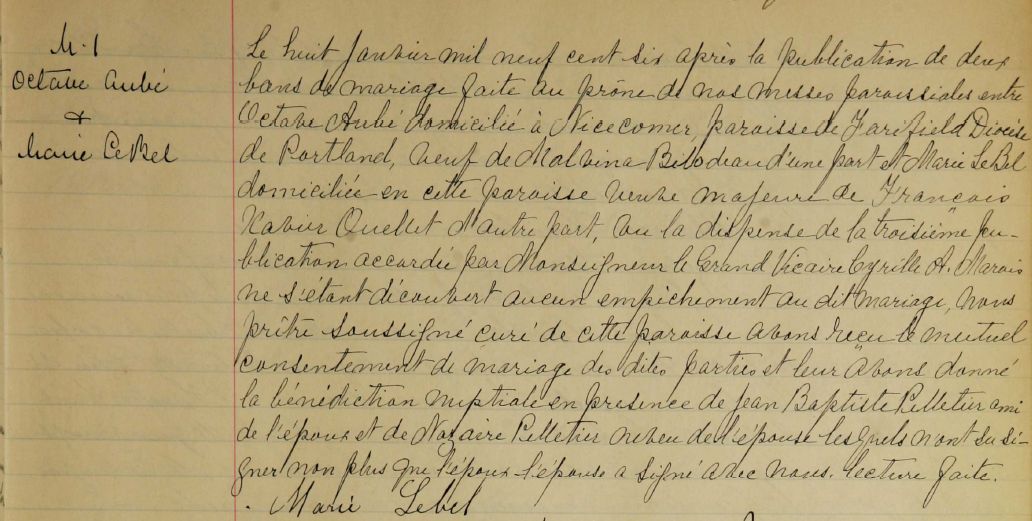 M. 1
Octave Aubé
&
Marie LeBel
Le huit Janvier mil neuf cent six après la publication de deux
bans de mariage faite au prône de nos messes paroissiales entre
Octave Aubé domicilié à Nicecomer, paroisse de Farifield Diocèse
de Portland, veuf de Malvina Bilodeau d'une part et Marie LeBel
domiciliée en cette paroisse veuve majeure de François
Xavier Ouellet d'autre part, vu la dispense de la troisième pu-
blication accordée par Monseigneur le Grand Vicaire Cyrille A. Marois
ne s'étant découvert aucun empêchement au dit mariage, nous
prêtre soussigné curé de cette paroisse avons reçu le mutuel
consentement de mariage des dites parties et leur avons donné
la bénédiction nuptiale en présence de Jean Baptiste Pelletier ami
de l'époux et de Nazaire Pelletier neveu de l'épouse lesquels n'ont su si-
gner non plus que l'époux. l'épouse a signé avec nous. lecture faite.
Marie Lebel